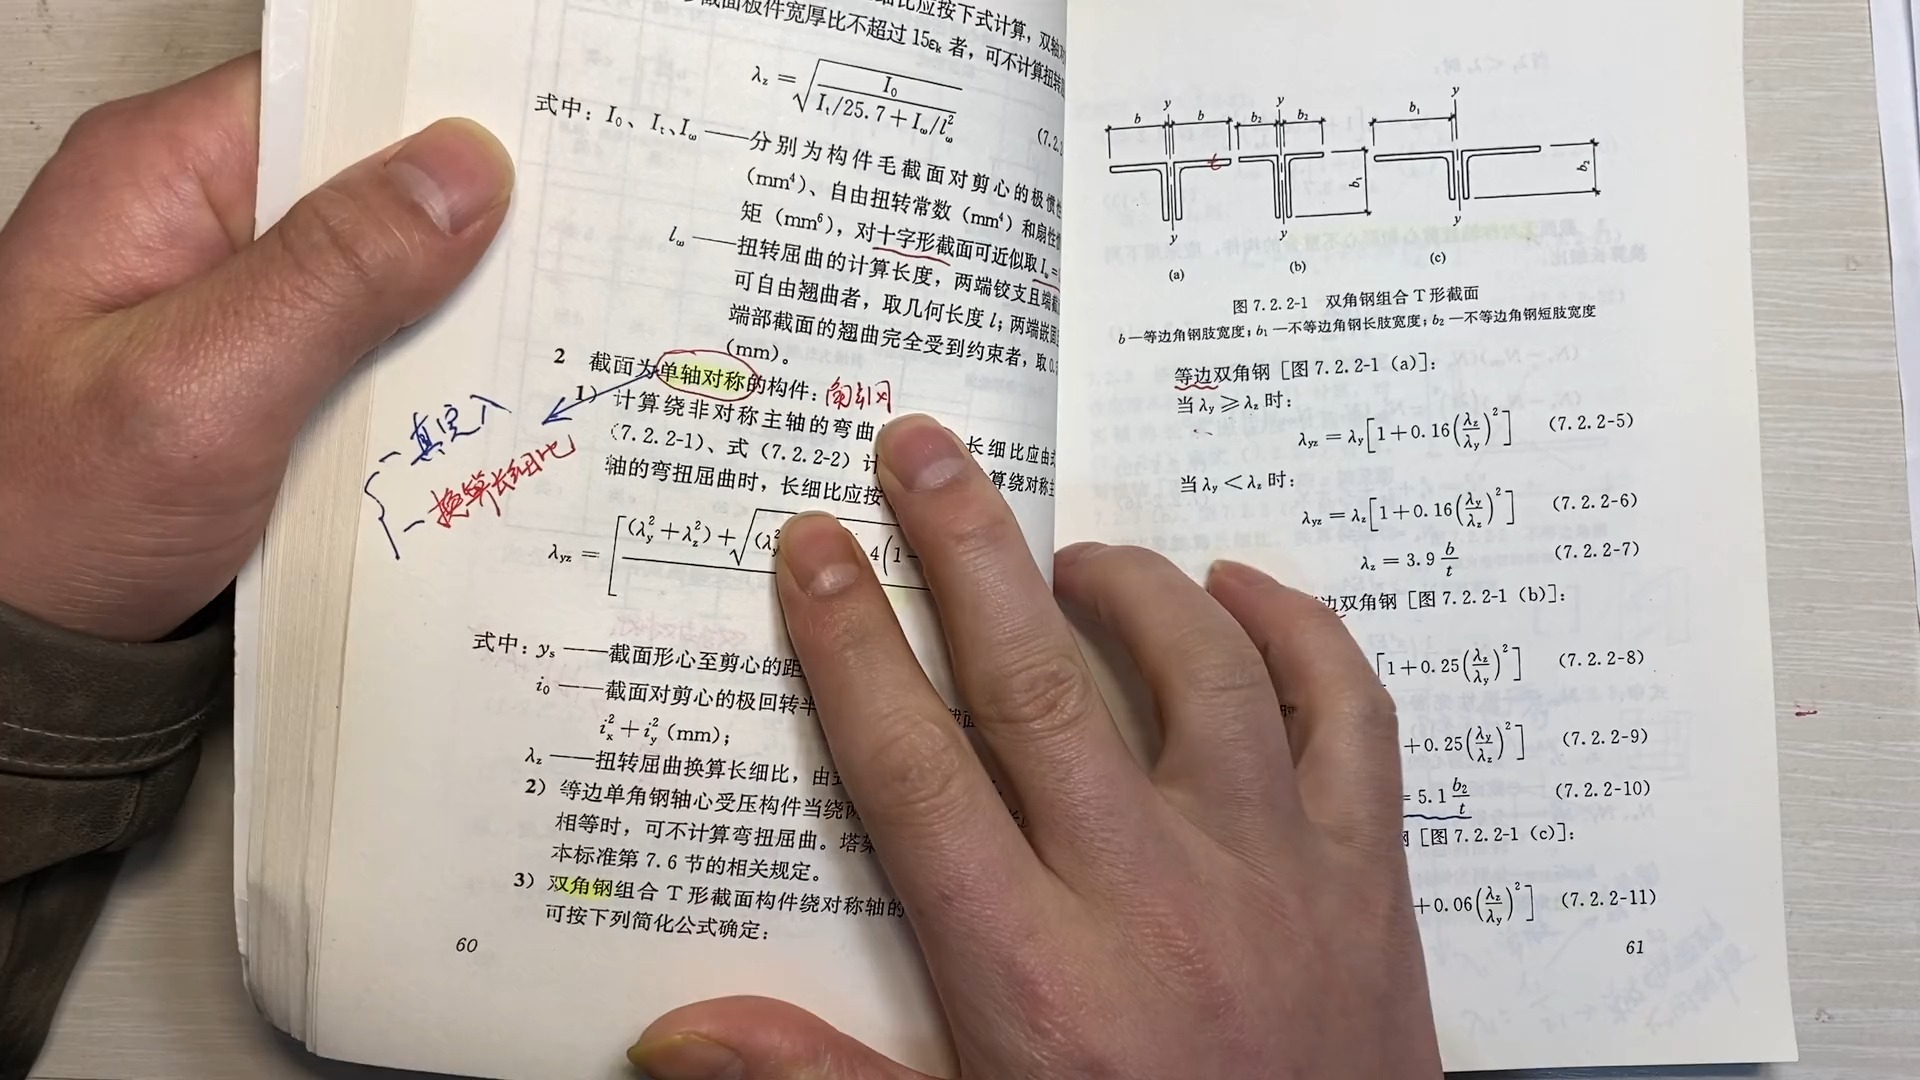 细比应按下式计算，双轴对
截面板件宽厚比不超过 15εk 者，可不计算扭转
λz = √(I0 / (It/25.7 + Iω/lω²)) (7.2.
式中：I0、It、Iω ——分别为构件毛截面对剪心的极惯性
(mm⁴)、自由扭转常数 (mm⁴) 和扇性
矩 (mm⁶)，对十字形截面可近似取 Iω =
lω ——扭转屈曲的计算长度，两端铰支且端截
可自由翘曲者，取几何长度 l；两端嵌固
端部截面的翘曲完全受到约束者，取 0.
(mm)。
2 截面为单轴对称的构件：
1) 计算绕非对称主轴的弯曲 长细比应由式
(7.2.2-1)、式 (7.2.2-2) 计 算绕对称主
轴的弯扭屈曲时，长细比应按
换算长细比
λyz = [(λy² + λz²) + √(λy² 4(1-
式中：ys ——截面形心至剪心的距
i0 ——截面对剪心的极回转半
ix² + iy² (mm)；
λz ——扭转屈曲换算长细比，由式
2) 等边单角钢轴心受压构件当绕两
相等时，可不计算弯扭屈曲。塔架
本标准第 7.6 节的相关规定。
3) 双角钢组合 T 形截面构件绕对称轴的
可按下列简化公式确定：
60
y y y
b b b2 b2 b1
t b1 b2
y y y
(a) (b) (c)
图 7.2.2-1 双角钢组合 T 形截面
b —等边角钢肢宽度；b1 —不等边角钢长肢宽度；b2 —不等边角钢短肢宽度
等边双角钢 [图 7.2.2-1 (a)]：
当 λy ≥ λz 时：
λyz = λy[1+0.16(λz/λy)²] (7.2.2-5)
当 λy < λz 时：
λyz = λz[1+0.16(λy/λz)²] (7.2.2-6)
λz = 3.9 b/t (7.2.2-7)
边双角钢 [图 7.2.2-1 (b)]：
[1+0.25(λz/λy)²] (7.2.2-8)
时
+0.25(λy/λz)²] (7.2.2-9)
= 5.1 b2/t (7.2.2-10)
[图 7.2.2-1 (c)]：
+0.06(λz/λy)²] (7.2.2-11)
61